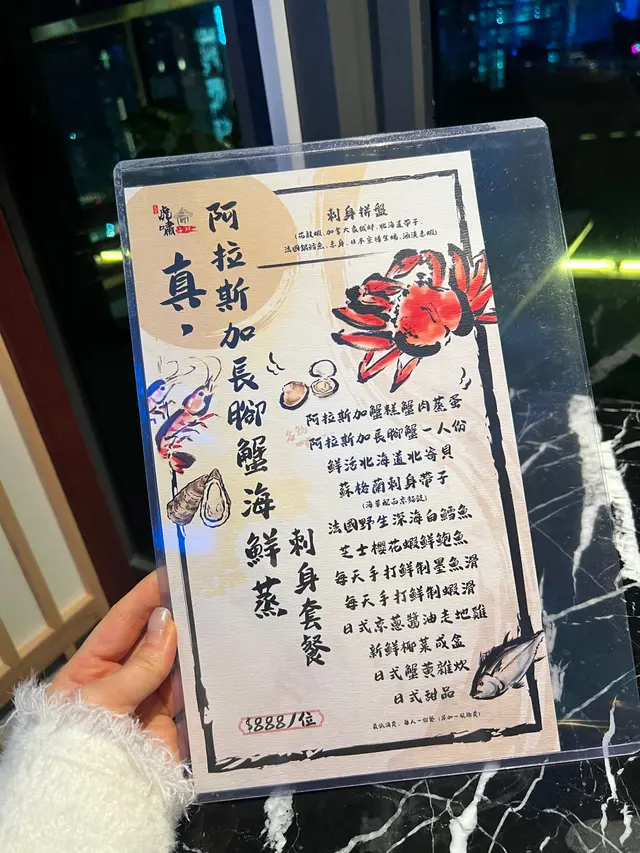 虎嘯
真，
阿拉斯加長腳蟹海鮮蒸
刺身套餐
$888/位
刺身拼盤
法國藍鱈魚、赤身、日本室津生蠔、
阿拉斯加蟹糕蟹肉蒸蛋
阿拉斯加長腳蟹一人份
鮮活北海道北寄貝
蘇格蘭刺身帶子
法國野生深海白鱈魚
芝士櫻花蝦鮮鮑魚
每天手打鮮制墨魚滑
每天手打鮮制蝦滑
日式京蔥醬油走地雞
新鮮椰菜成盆
日式蟹黃雜炊
日式甜品
最低消費，每人一份餐（另加一服務費）